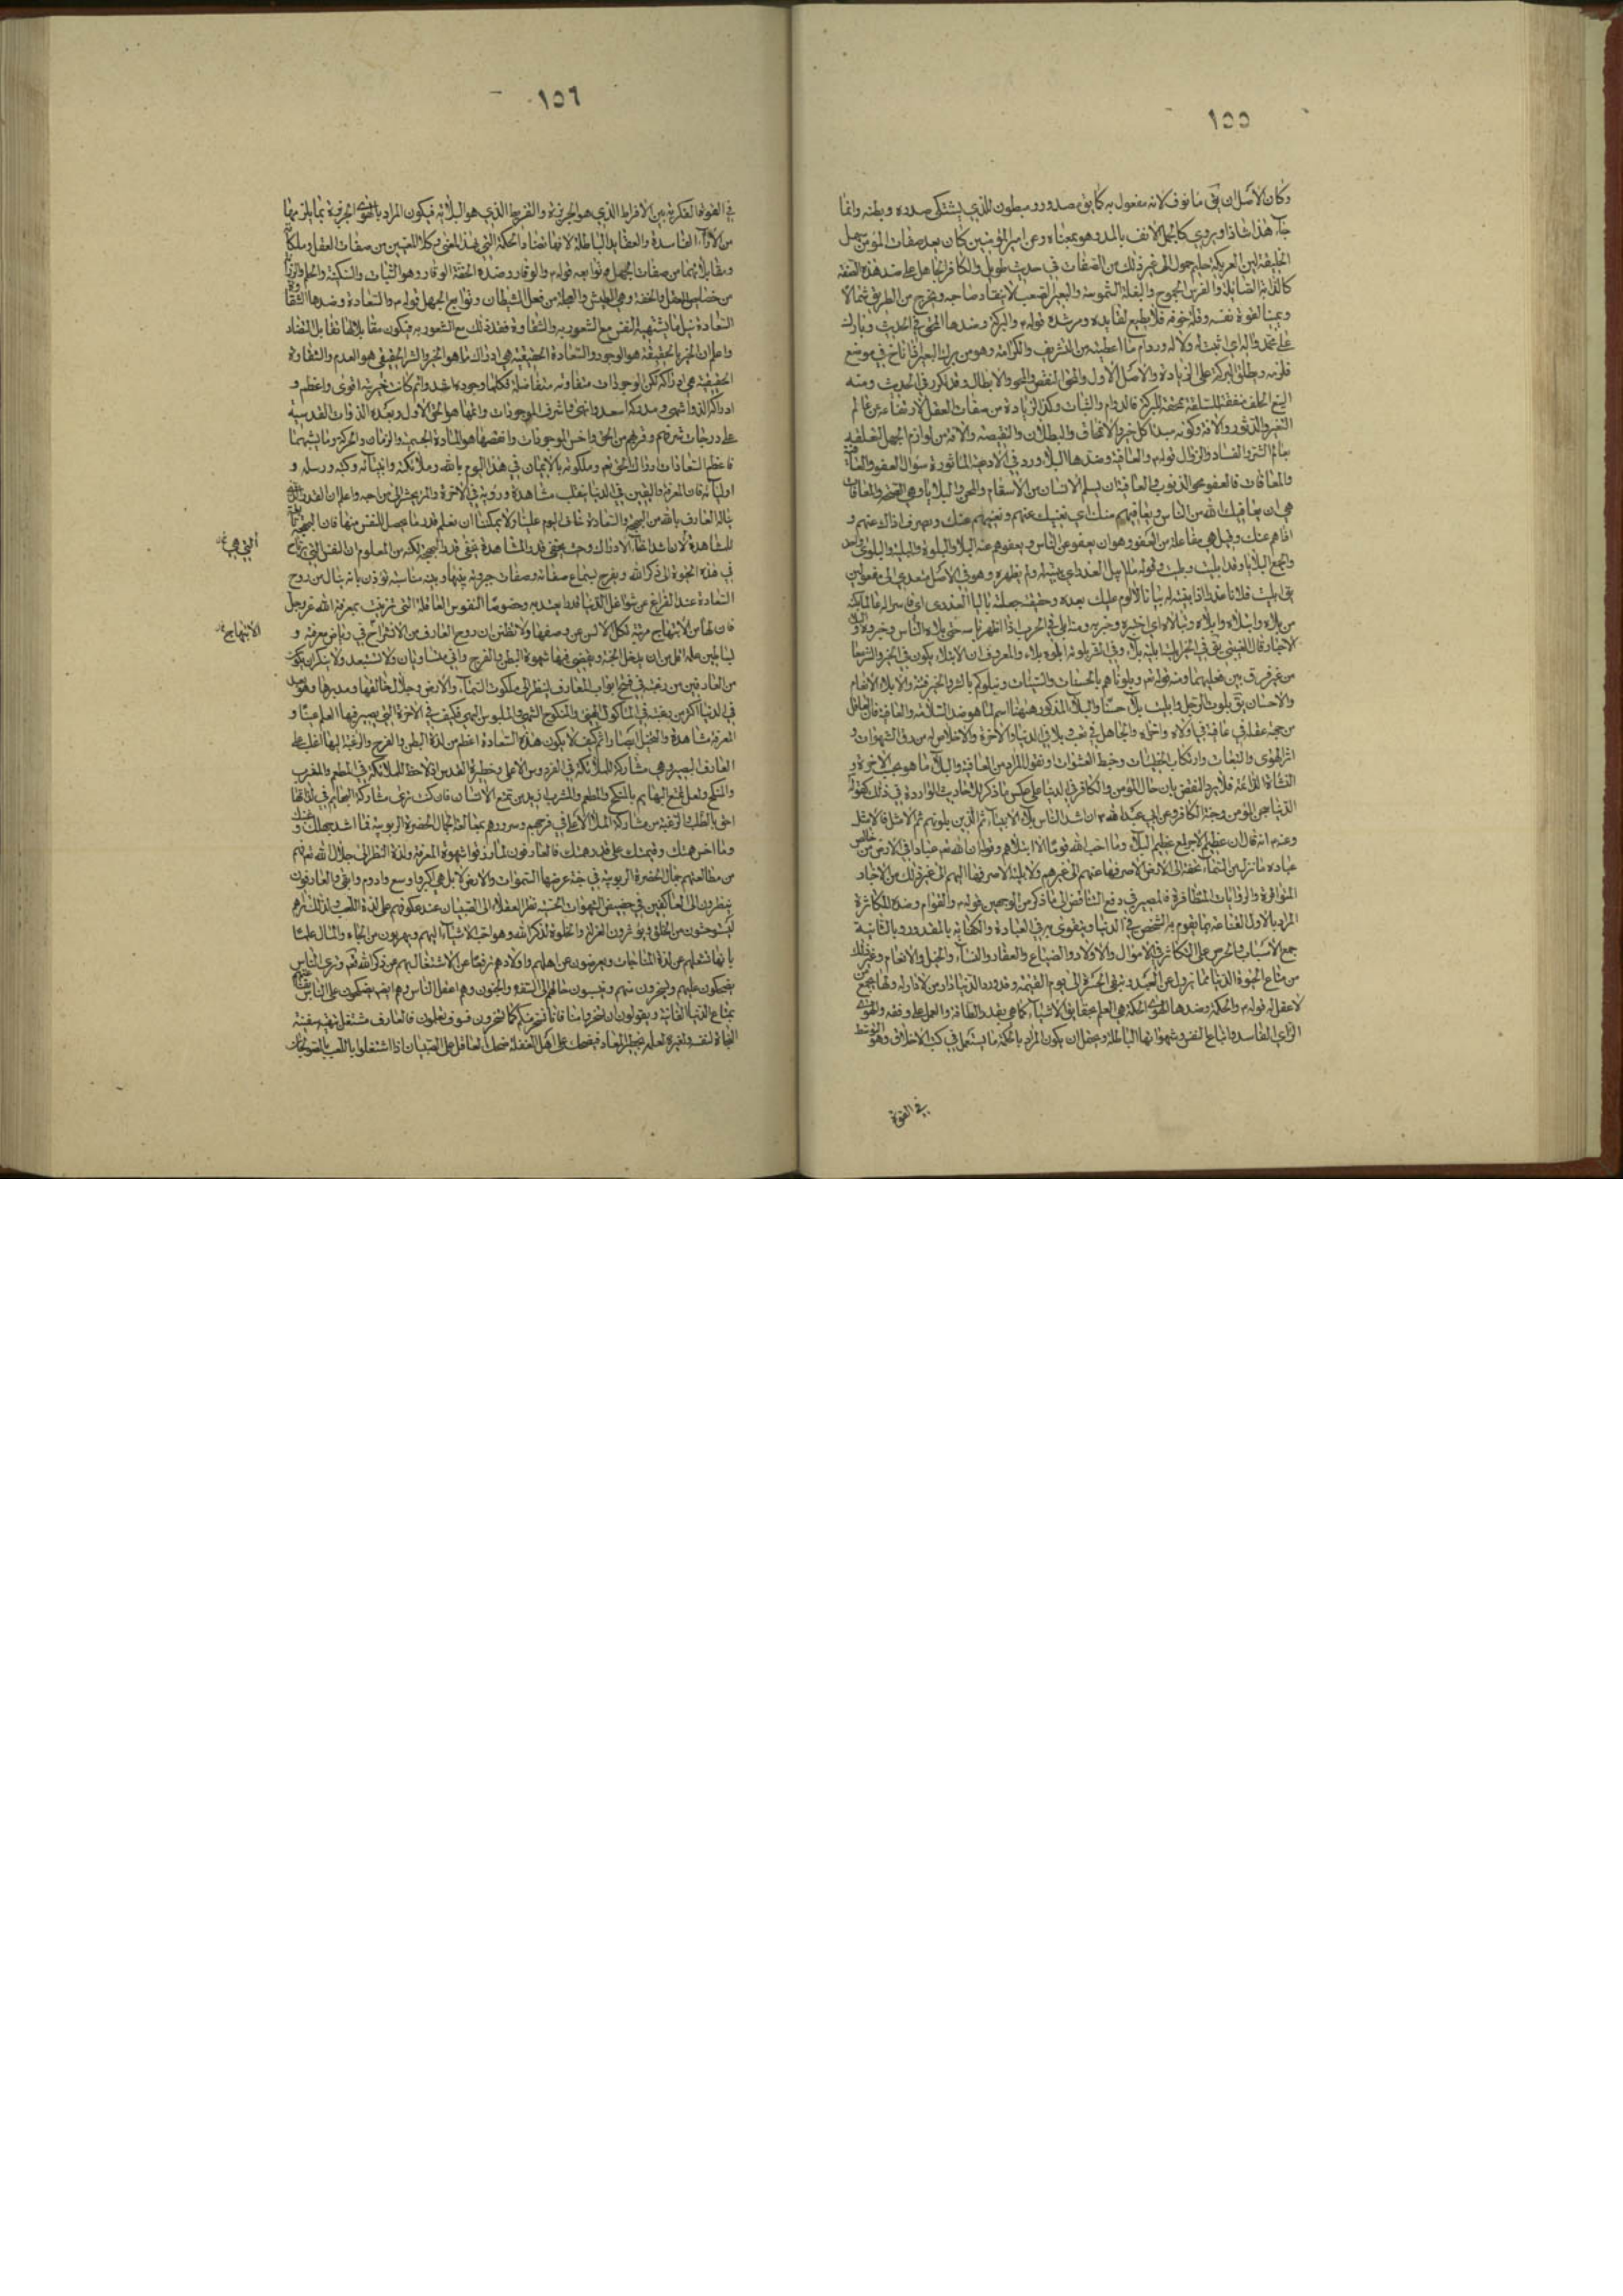 ١٥٥
وكان الاصل ان يق مانوف لانه مفعول به كما يق مصدور ومبطون للذي يشتكي صدره وبطنه وانما
جاء هذا شاذا ويروى كالجمل الآنف بالمد وهو بمعناه وعن امير المؤمنين كان بعد صفات المؤمن سهل
الخليقة لين العريكة حليم حمول الى غير ذلك من الصفات في حديث طويل والكافر الجاهل على ضد هذه الصفة
كالدابة الصائلة والفرس الجموح والبغلة الشموسة والبعير الصعب لا ينقاد صاحبه ويخرج من الطريق شمالا
ويمينا لقوة نفسه وقلة خوفه فلا يطيع لقايده ومرشده قوله والبركة وضدها المحق في الحديث وبارك
على محمد واله اي اثبت له وادم ما اعطيته من التشريف والكرامة وهو من برك البعير اذا ناخ في موضع
فلزمه ويطلق البركة على الزيادة والاصل الاول والمحق النقص والمحو والابطال وقد تكرر في الحديث ومنه
البيع الحلف منفقة للسلعة ممحقة للبركة فالدوام والثبات وكذا الزيادة من صفات العقل لارتفاعه عن عالم
التغير والدثور والافة وكونه مبدأ كل خير والانمحاق والبطلان والنقيصة والافة من لوازم الجهل لتعلقه
بعالم الشر والفساد والزوال قوله والعافية وضدها البلاء ورد في الادعية الماثورة سؤال العفو والعافية
والمعافات فالعفو محو الذنوب والعافية ان يسلم الانسان من الاسقام والمحن والبلايا وهي الصحة والمعافات
هي ان يعافيك الله من الناس ويعافيهم منك اي يغنيك عنهم ويغنيهم عنك ويصرف اذاك عنهم و
اذاهم عنك وقيل هي مفاعلة من العفو وهو ان يعفو عن الناس ويعفوهم عنه البلاء والبلوة والبلية والبلوى واحد
والجمع البلايا
من بلاه وابتلاه وابلاه
الاخبار قال القتيبي يق في الخير ابليته ابليه بلاء وفي الشر بلوته ابلوه بلاء والمعروف ان الابتلاء يكون في الخير والشر معا
من غير فرق بين فعليهما ومنه قوله تع وبلوناهم بالحسنات والسيئات ونبلوكم بالشر والخير فتنة والابلاء الانعام
والاحسان يق بلوت الرجل وابليت بلاء حسنا والبلاء المذكور ههنا اسم لما هو ضد السلامة والعافية فالعاقل
من جهة عقله في عافية في اولاه واخراه والجاهل في تعب وبلاء في الدنيا والاخرة
اثر الهوى والتبعات وارتكاب الخطيئات وخبط العشوات او نقول المراد من العافية والبلاء ما هو بحسب الاخرة و
النشاة الدائمة فلا يرد النقض بان حال المؤمن والكافر في الدنيا على عكس ما ذكر للاحاديث الواردة في ذلك كقوله
الدنيا سجن المؤمن وجنة الكافر وعن ابي عبد الله ان اشد الناس بلاء الانبياء ثم الذين يلونهم ثم الامثل فالامثل
وعنه انه قال ان عظيم الاجر لمع عظيم البلاء وما احب الله قوما الا ابتلاهم وقوله ان لله تعم عبادا في الارض من خالص
عباده ما تنزل من السماء تحفة الى الارض الا صرفها عنهم الى غيرهم ولا بلية الا صرفها اليهم الى غير ذلك من الاخبار
المتوافرة والروايات المتظافرة فالمصير في دفع التناقض الى ما ذكر من الوجهين قوله والقوام وضده المكاثرة
المراد بالاول القناعة بما يقوم به الشخص في الدنيا ويتقوى به في العبادة والكفاية بالمقدور وبالثانية
جمع الاسباب والحرص على التكاثر في الاموال والاولاد والضياع والعقار والنساء والخيل والانعام وغير ذلك
من متاع الحيوة الدنيا مما يزول عن العبد ويبقى الحسرة الى يوم القيمة وقد ورد الدنيا دار من لا دار له ولها يجمع من
لا عقل له قوله والحكمة وضدها الهوى الحكمة هي العلم بحقايق الاشياء كما هي بقدر الطاقة والعمل على وفقه والهوى
الراي الفاسد واتباع النفس وشهواتها الباطلة ويحتمل ان يكون المراد بالحكمة ما يستعمل في كتب الاخلاق وهو التوسط
في القوة
١٥٦
في القوة الفكرية بين الافراط الذي هو الجربزة والتفريط الذي هو البلاهة فيكون المراد بالهوى الجربزة بما يلزمها
من الآراء الفاسدة والعقايد الباطلة لانها تضاد الحكمة التي بهذا المعنى وكلا المعنيين من صفات العقل وملكاته
ومقابلاهما من صفات الجهل وتوابعه قوله والوقار وضده الخفة الوقار وهو الثبات والسكينة والحلم والرزانة
من خصايص العقل والخفة وهي الطيش والعجلة من فعل الشيطان وتوابع الجهل قوله والسعادة وضدها الشقاوة
السعادة نيل ما يشتهيه النفس مع الشعور به والشقاوة فقد ذلك مع الشعور به فيكون مقابلا لها تقابل التضاد
واعلم ان الخير بالحقيقة هو الوجود والسعادة الحقيقية هي ادراك ما هو الخير والشر الحقيقي هو العدم والشقاوة
الحقيقية هي ادراكه لكن الوجودات متفاوتة متفاضلة فكلما وجوده اشد واتم كانت خيريته اقوى واعظم و
ادراكه الذ واشهى ومدركه اسعد وابهى فاشرف الموجودات واتمها هو الحق الاول وبعده الذوات القدسية
على درجات شرفهم وقربهم من الحق واخس الموجودات وانقصها هو المادة الجسمية والزمان والحركة وما يشبهها
فاعظم السعادات ادراك الحق تعم وملكوته بالايمان في هذا اليوم بالله وملائكته وانبيائه وكتبه ورسله و
اوليائه فان المعرفة واليقين في الدنيا ينقلب مشاهدة ورؤية في الاخرة والمرء يحشر الى من احبه واعلم ان القدر الذي
يناله العارف بالله من البهجة والسعادة
للمشاهدة لان
في هذه الحيوة الى ذكر الله ويفرح بسماع صفاته وصفات جبروته
السعادة عند الفراغ عن شواغل الدنيا قدرا يعتد به وخصوصا النفوس العاقلة التي تزينت بمعرفة الله عز وجل
فان لها من الابتهاج مرتبة تكل الالسن عن وصفها ولا تظنن ان روح العارف من الانشراح في رياض معرفته و
بساتين علمه اقل من ان يدخل الجنة ويقضي فيها شهوة البطن والفرج وانى متساويان ولا تستبعد ولا ينكر ان يكون
من العارفين من رغبته في فتح ابواب المعارف لينظر الى ملكوت السماء والارض وجلال خالقها ومدبرها
في الدنيا اكثر من رغبته في الماكول الهني والمنكوح الشهي والملبوس البهي فكيف في الاخرة التي يصير فيها العلم عينا و
المعرفة مشاهدة والتخيل ابصارا ثم كيف لا يكون هذه السعادة اعظم من لذة البطن والفرج والرغبة اليها اغلب على
العارف البصير وهي مشاركة للملائكة في الفردوس الاعلى وحظيرة القدس اذ لا حظ للملائكة في المطعم والمشرب
والمنكح ولعل تمتع البهايم بالمنكح والمطعم والمشرب يزيد من تمتع الانسان فان كنت ترى مشاركة البهايم في لذاتها
احق بالطلب والرغبة من مشاركة الملا الاعلى في فرحهم وسرورهم بمطالعة الجمال الحضرة الربوبية فما اشد جهلك و
وما اخس همتك وقيمتك على قدر همتك فالعارفون لما رزقوا شهوة المعرفة ولذة النظر الى جلال الله تعم فهم
من مطالعتهم جمال الحضرة الربوبية في جنة عرضها السموات والارض لا بل هي اكبر واوسع وادوم وابقى والعارفون
ينظرون الى العاكفين في حضيض الشهوات الحسية نظر العقلاء الى الصبيان عند عكوفهم على لذة اللعب ولذلك تراهم
يستوحشون من الخلق ويؤثرون العزلة والخلوة لذكر الله وهو احب الاشياء اليهم ويهربون من الجاه والمال علما
بانها تشغلهم عن لذة المناجات ويعرضون عن اهلهم واولادهم ترفعا عن الاشتغال بهم عن ذكر الله تعم وترى الناس
يضحكون عليهم ويسخرون منهم وينسبون حالهم الى السفه والجنون وهم اعقل الناس وهم ايضا يضحكون على الناس لقناعتهم
بمتاع الدنيا الفانية ويقولون ان تسخروا منا فانا نسخر منكم كما تسخرون فسوف تعلمون فالعارف مشتغل بتهيئة سفينة
النجاة لنفسه ولغيره لعلمه بخطر المعاد فيضحك على اهل الغفلة ضحك العاقل على الصبيان اذا اشتغلوا باللعب بالصولجان
التي هي
الابتهاج